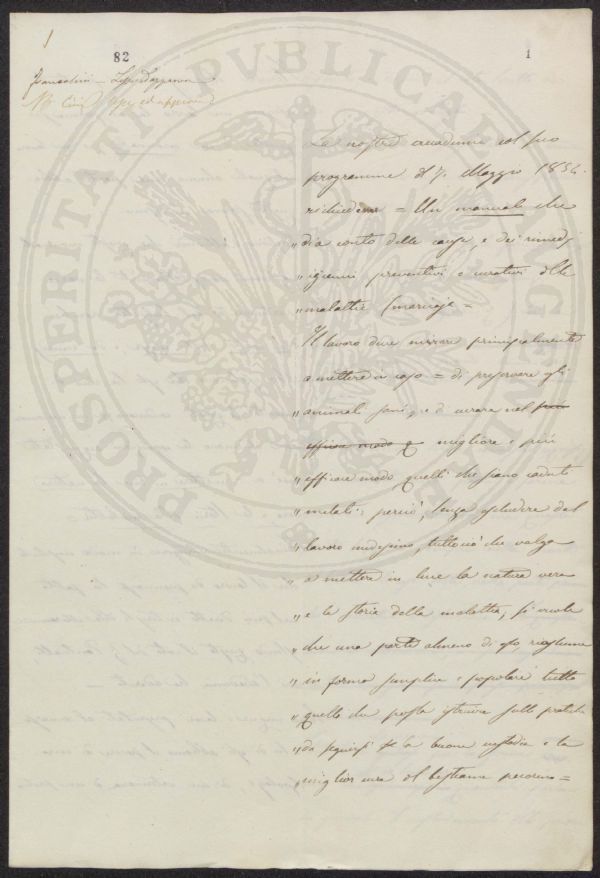 1
82
1
La nostra accademia col suo
programma del 7. Maggio 1854.
richiedeva = Un manuale che
„ dia conto delle cause, e dei rimedj
„ igienici preventivi e curativi delle
„ malattie
Il lavoro deve mirare principalmente
a mettere in caso = di preservare gli
„ animali sani, e di curare nel più
efficace modo e migliore e più
„ efficace modo quelli che siano caduti
„ malati; perciò, senza escludere dal
„ lavoro medesimo, tuttociò che valga
„ a mettere in luce la natura vera
„ e la storia della malattia, si vuole
„ che una parte almeno di esso, riassuma
„ in forma semplice e popolare tutto
„ quello che possa istruire sulle pratiche
„ da seguirsi per la buona custodia e la
„ miglior cura del bestiame pecorino =
PROSPERITATI PUBLICAE AUGENDAE